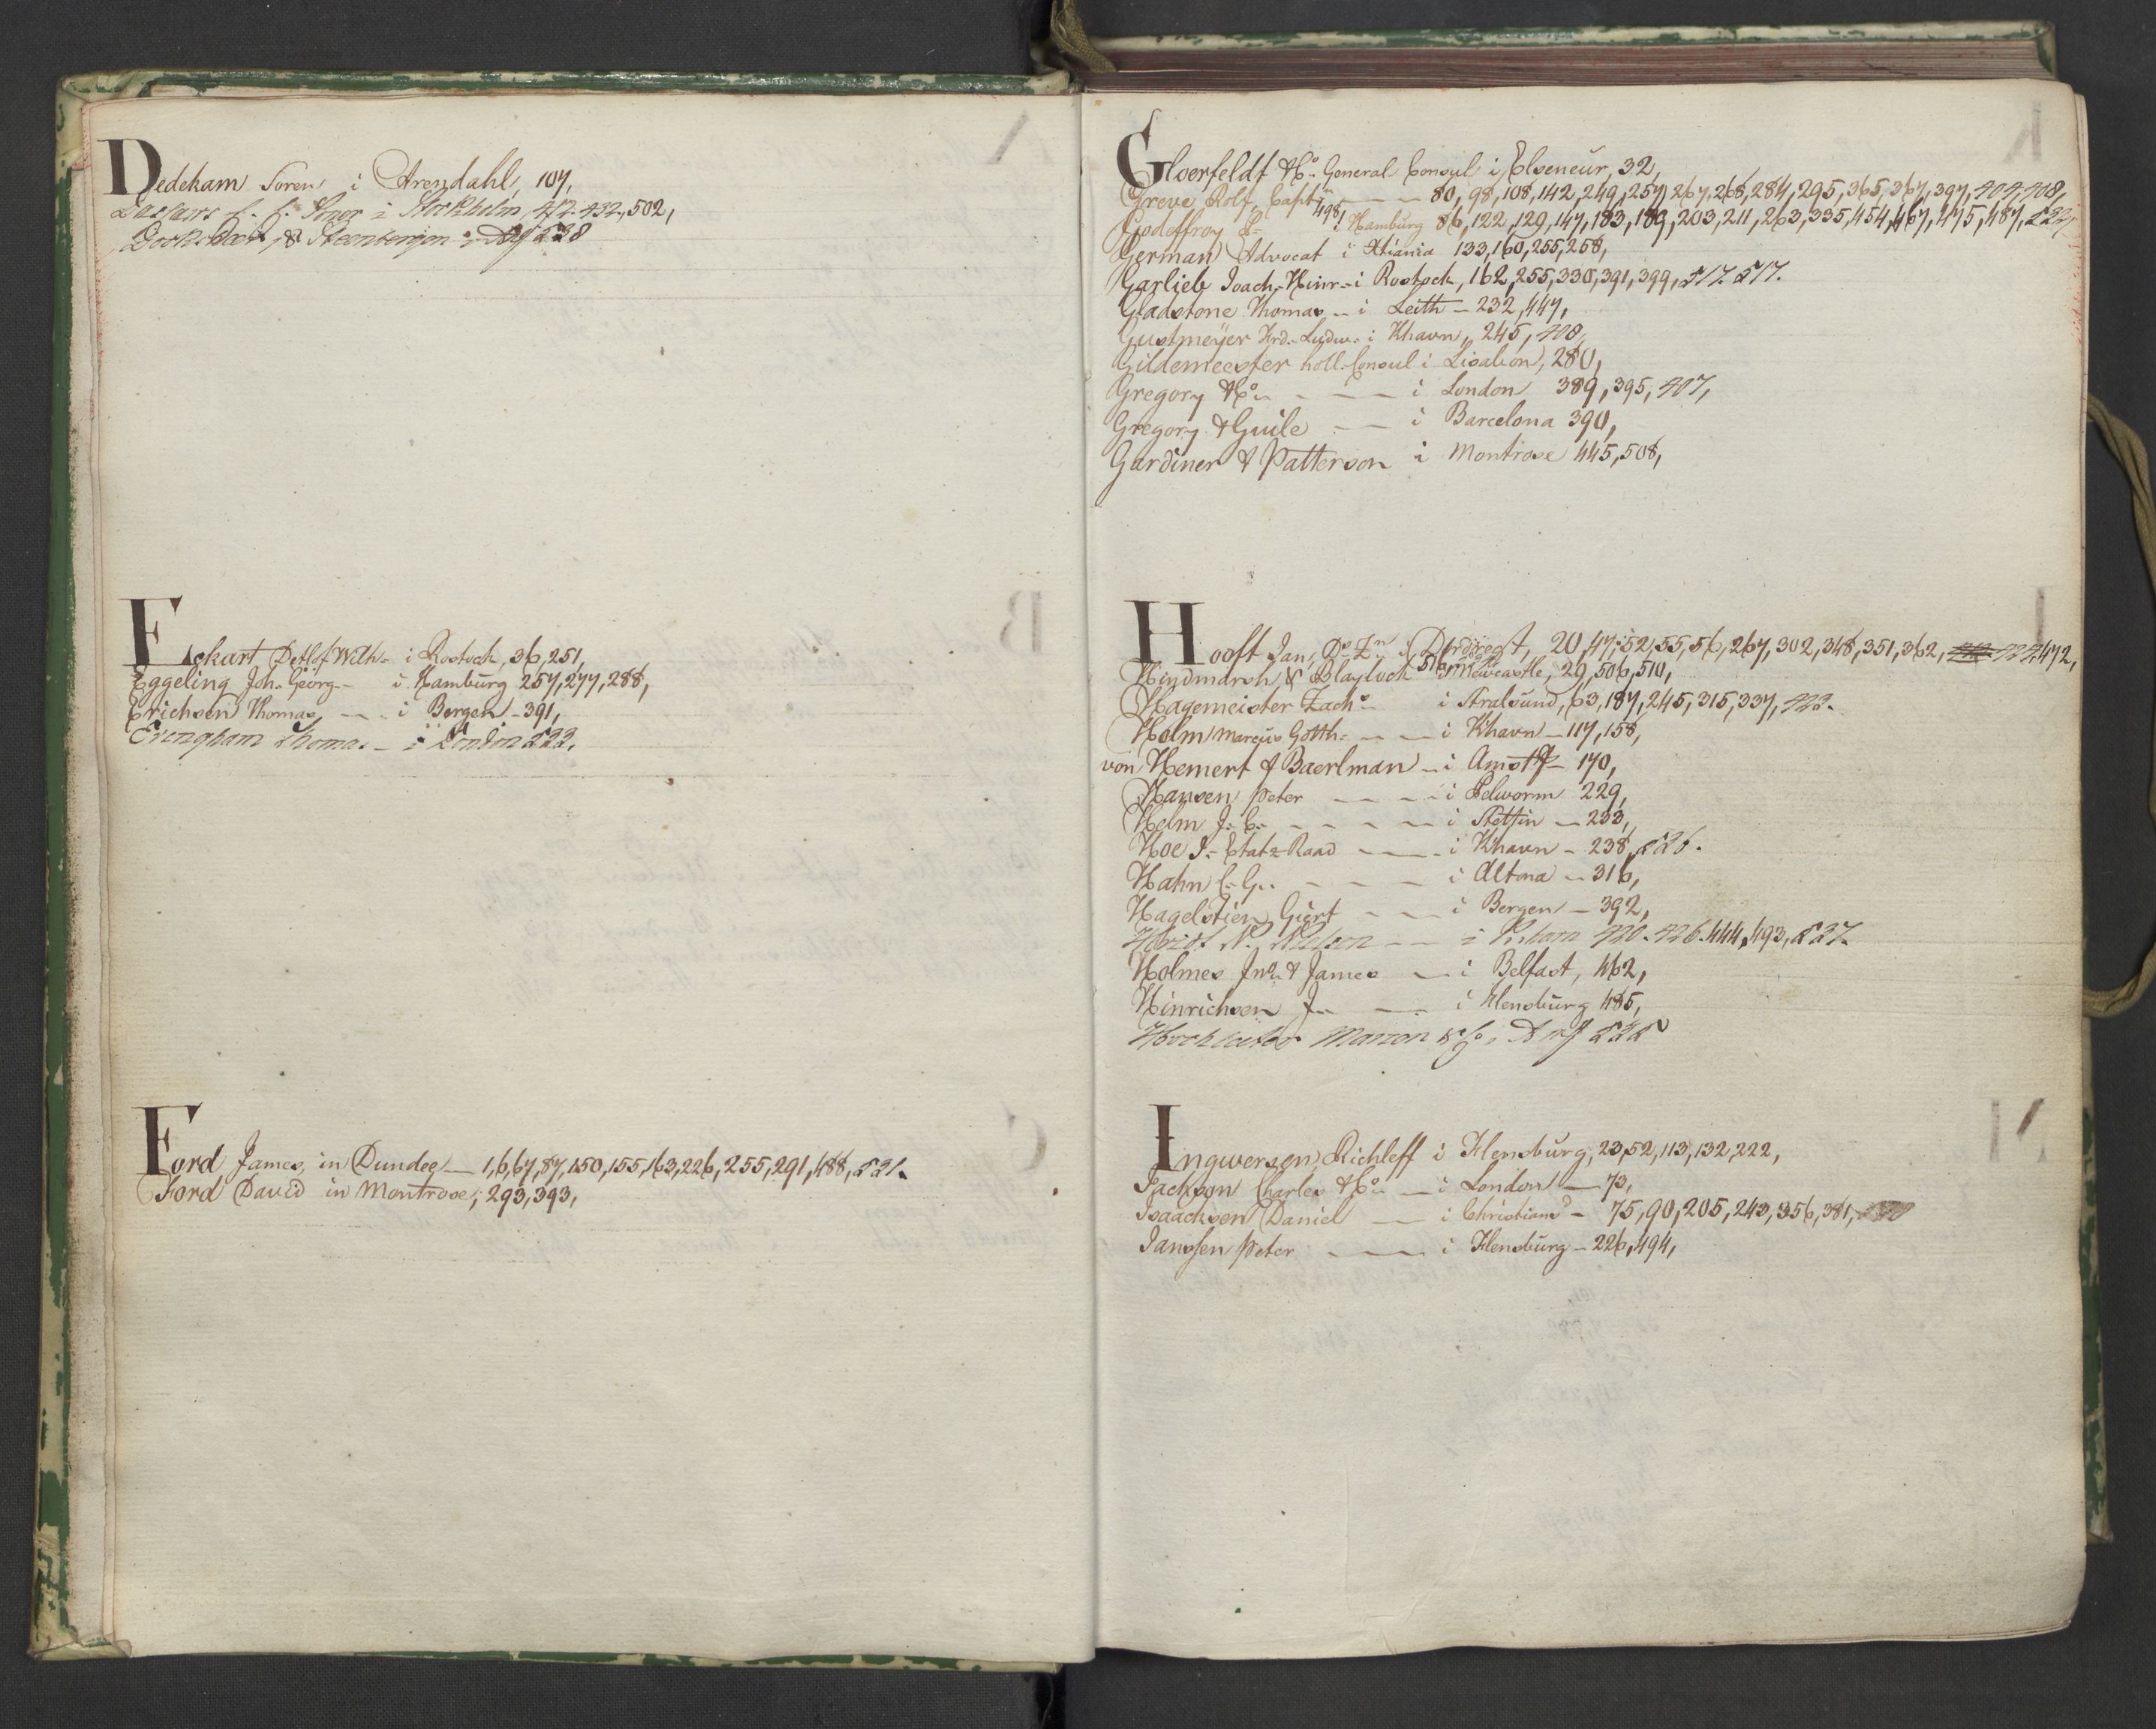 Dedekam Soren i Arendahl, 107,
Sons i Stockholm, 412. 432., 502,
& Steenbergen i 528
Eckart Detlof Wilh= i Rostock, 36, 251,
Eggeling Joh. Georg-- i Hamburg 257, 277, 288,
Erichsen Thomas, --- i Bergen - 391,
Evengham Thomas - i London 522.
Ford James, in Dundee — 1, 6, 67, 87, 150, 155, 163, 226, 255, 291, 488, 521.
Ford David in Montrose, 293, 393,
Gloerfeldt & Co. General Consul i Elseneur, 32,
Greve Rolf, Captn — — 80, 98, 108, 142, 249, 257, 267, 268, 284, 295, 365, 367, 397, 404. 408,
Godeffroy 498, i Hamburg 86, 122, 129, 147, 183, 189, 203, 211, 263, 335, 454, 467, 475, 487, 523,
German Advocat i Xtiania 133, 160, 255, 258,
Garlieb Joach. Hinr- i Rostock, 162, 255, 330, 391, 399, 517. 517.
Gladstone Thomas -- i Leith — 232, 447,
Gustmeyer Frd. Ludw. i Khavn, 245, 408,
Gildemeester holl. Consul i Lisabon, 280,
Gregory & Co. - — — i London 389, 395, 407,
Gregory & Guile — — i Barcelona 390,
Gardiner & Patterson i Montrose 445, 508,
Hooft Jan, De Zn i Dordregt, 20, 47, 52, 55, 56, 267, 302, 348, 351, 362, 472,
Hindmarsh & Blaylock 516, i Newcastle, 29, 506, 510,
Hagemeister Zachs i Stralsund, 63, 187, 245, 315, 337, 422.
Holm Marcus Gotth= — — i Khavn — 117, 158,
von Hemert & Baerlman — i Amst — 170,
Hansen Peter — — — i Pelworm 229,
Helm J. C. - - - — i Stettin — 233,
Hoe J. Etatz Raad — — i Khavn - 238, 526.
Hahn C. G. - - — i Altona — 316,
Hagelstien Giert - — — i Bergen — 392,
N. Nielsen — — i 420. 426. 444, 493, 527.
Holmes Jno. & James — i Belfast, 462,
Hinrichsen J. — i Flensburg 485,
Marzon & Co, 525
Ingwersen, Richleff i Flensburg, 23, 52, 113, 132, 222,
Jackson Charles & Co. — i London — 73,
Isaacksen Daniel — i Christiansd - 75, 90, 205, 243, 356, 381,
Janssen Peter — — i Flensburg — 226, 494,